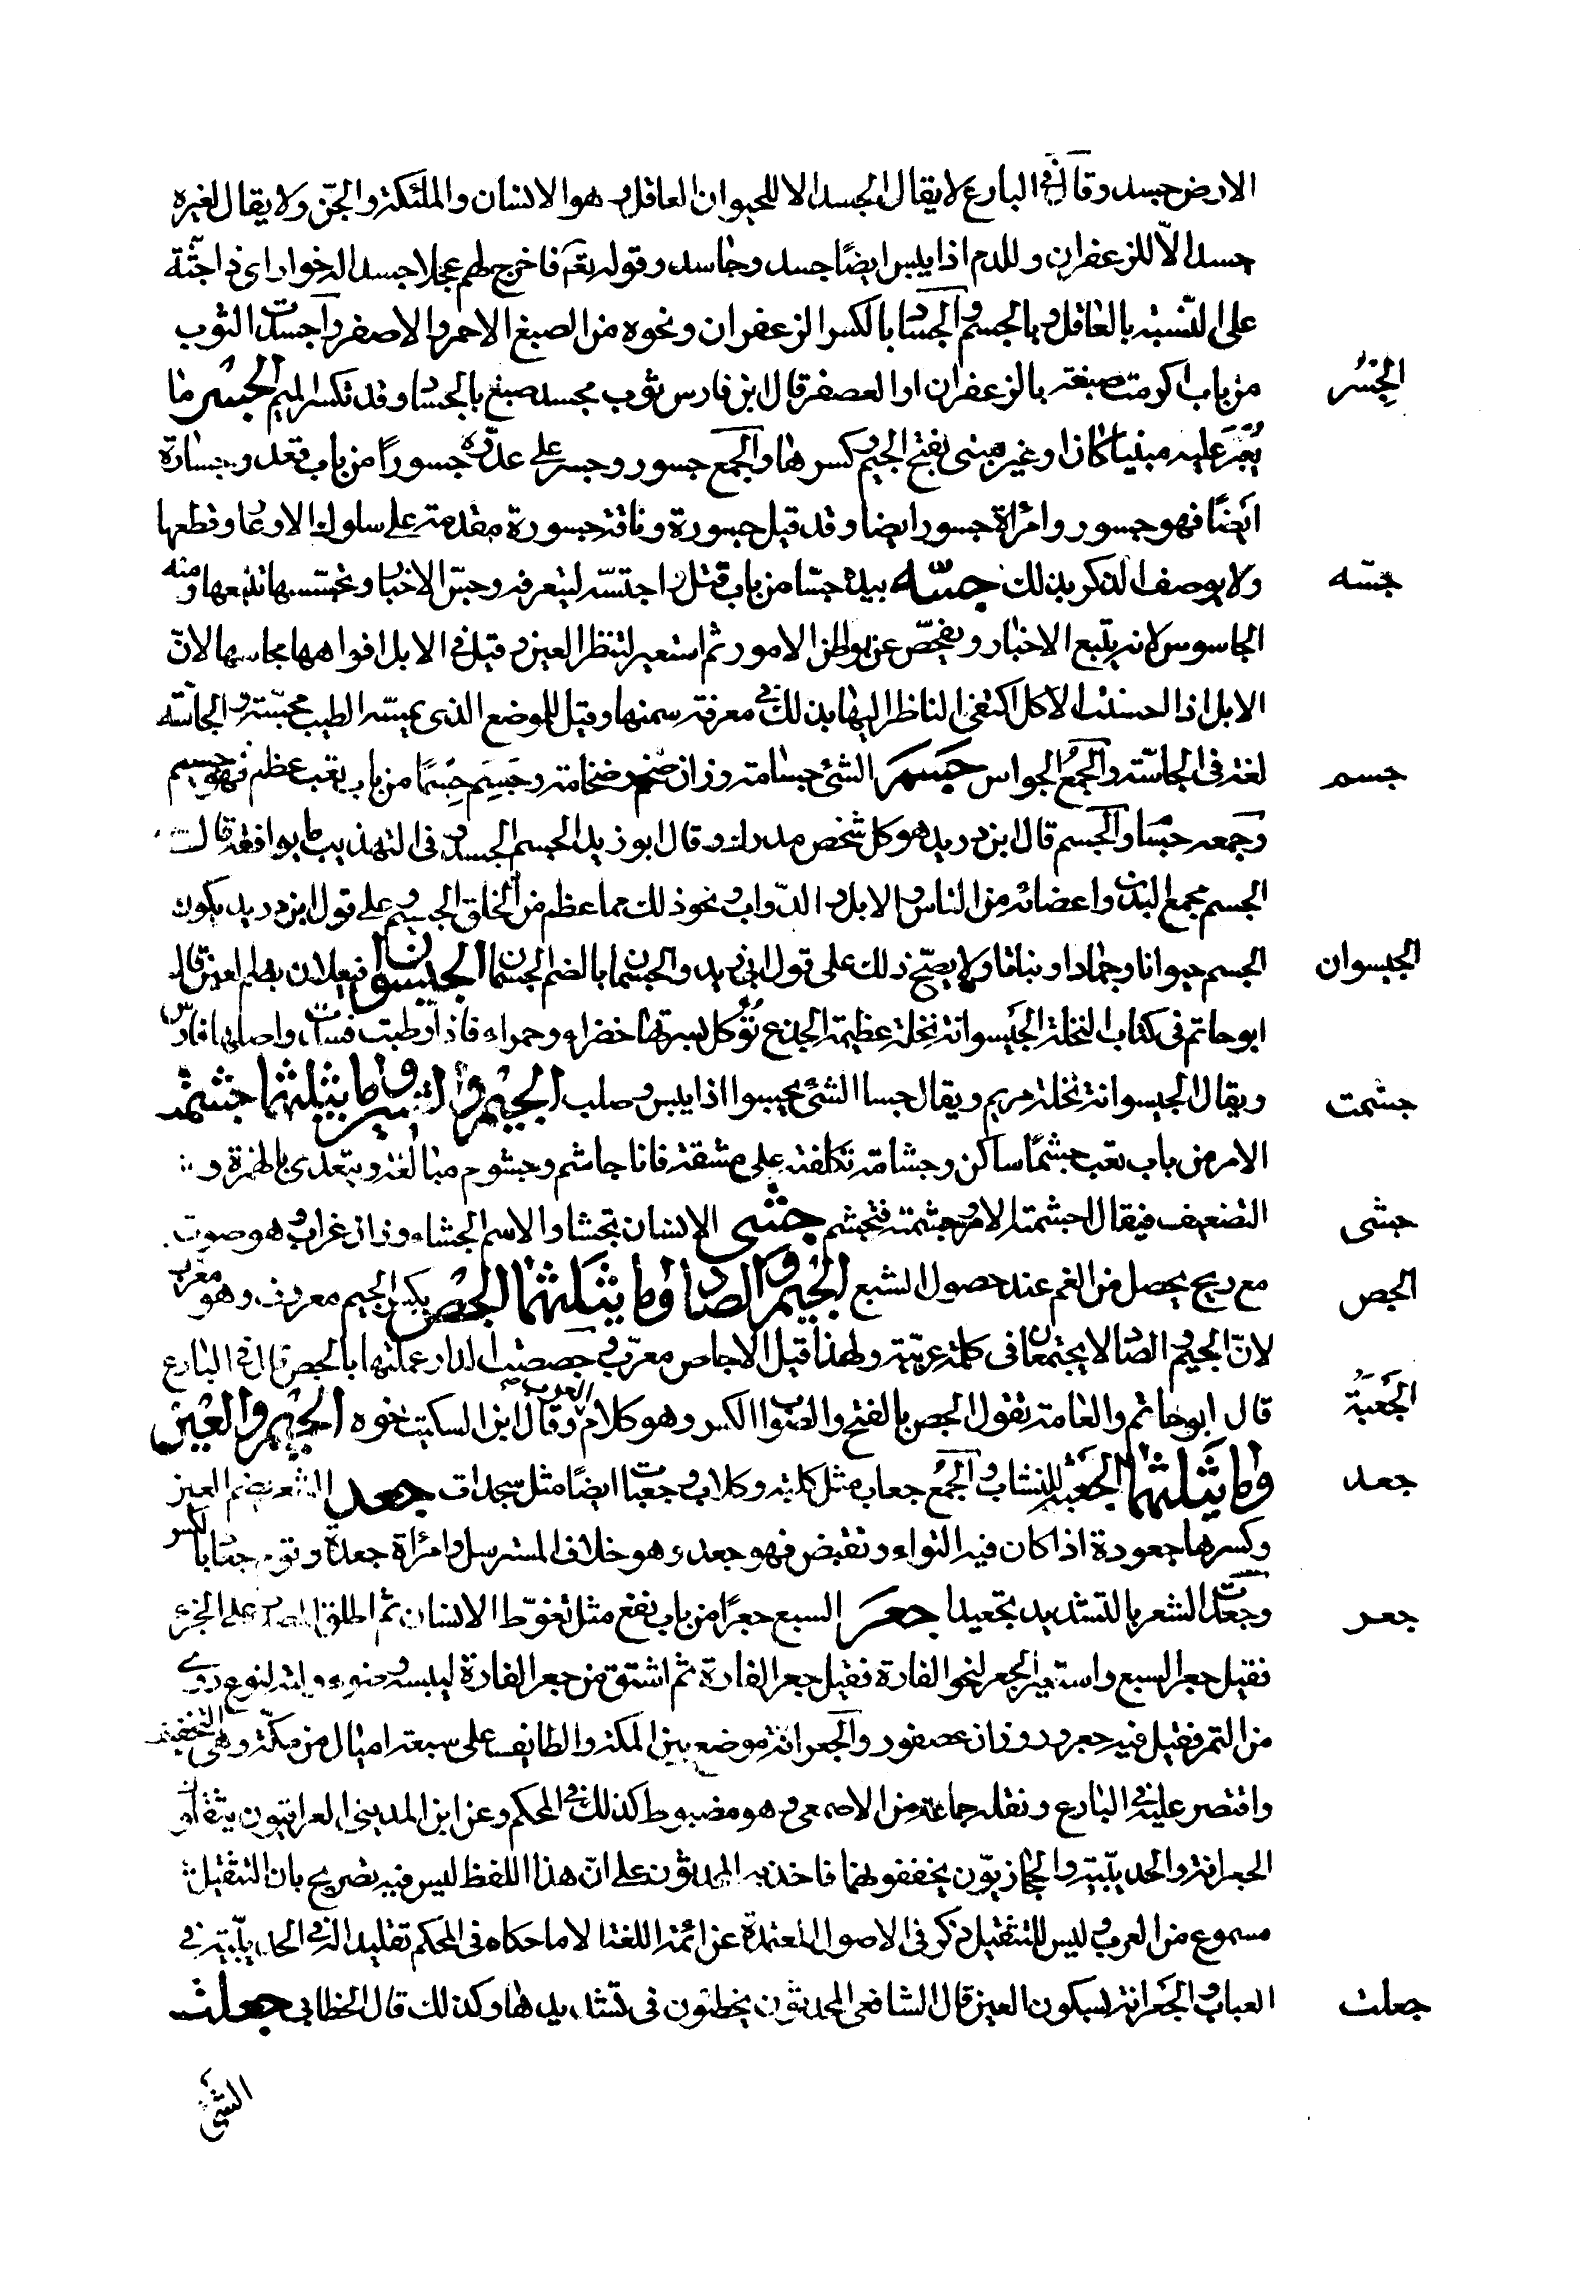 الارض جسد وقال في البارع لا يقال الجسد الا للحيوان العاقل وهو الانسان والملئكة والجن ولا يقال لغيره
جسد الّا للزعفران وللدم اذا يبس ايضًا جسد وجاسد وقوله تع فاخرج لهم عجلا جسدا له خوار اى ذا جثّة
على التّشبيه بالعاقل وبالجسم والجساد بالكسر الزعفران ونحوه من الصبغ الاحمر والاصفر واجسدت الثوب
الجسر
من باب اكرمت صبغته بالزعفران او العصفر قال ابن فارس ثوب مجسد صبغ بالجساد وقد تكسر الميم الجسر ما
يُعبَر عليه مبنيا كان او غير مبنى بفتح الجيم وكسرها والجمع جسور وجسر على عدوّه جسورًا من باب قعد وجسارة
ايضًا فهو جسور وامرأة جسور ايضا وقد قيل جسورة وناقة جسورة مقدمة على سلوك الاوعار وقطعها
جسّه
ولا يوصف الذكر بذلك جسّه بيده جسّا من باب قتل واجتسّه ليتعرفه وجسّ الاخبار وتجسّسها تتبعها ومنه
الجاسوس لانه يتّبع الاخبار ويفحصّ عن بواطن الامور ثم استعير لنظر العين وقيل في الابل افواهها مجاسها لانّ
الابل اذا احسنت الاكل اكتفى الناظر اليها بذلك في معرفة سمنها وقيل للموضع الذى يمسّه الطيب مجسّة والجاسّه
جسم
لغة فى الحاسّة والجمع الجواس جسم الشئ جسامة وزان ضخم ضخامة وجَسِم جِسْمًا من باب تعب عظم فهو جسيم
وجمعه جسام والجسم قال ابن دريد هو كل شخص مدرك وقال ابو زيد الجسم الجسد وفى التهذيب ما يوافقه قالت
الجسم مجمع البدن واعضائه من الناس والابل والدّواب ونحو ذلك مما عظم من الخلق الجسيم وعلى قول ابن دريد يكون
الجيسوان
الجسم حيوانا وجمادا ونباتا ولا يصحّ ذلك على قول ابى زيد والجسمان بالضم الجسمان الجيسوان فيعلان بضم العين قال
ابو حاتم فى كتاب النخلة الجَيسوانة نخلة عظيمة الجذع تؤكل بسرتها خضراء وحمراء فاذا ارطبت فسدت واصلها فارسى
جشمت
ويقال الجيسوانة نخلة مريم ويقال جسا الشئ يجسوا اذا يبس وصلب الجيم والشين وما يثلثهما جشمت
الامر من باب تعب جشمًا ساكن وجشامة تكلفته على مشقة فانا جاشم وجشوم مبالغة ويتعدى بالهمزة و
جشى
التضعيف فيقال اجشمته الامر وجشمته فتجشم جشى الانسان تجشا والاسم الجشاء وزان غراب وهو صوت
الجص
مع ريح يحصل من الفم عند حصول الشبع الجيم والصاد وما يثلثهما الجص بكسر الجيم معروف وهو معرب
لانّ الجيم والصاد لا يجتمعان فى كلمة عربيّة ولهذا قيل الاجاص معرّب وجصصت الدار عملتها بالجص قال فى البارع
الجَعبَةُ
قال ابو حاتم والعامة تقول الجص بالفتح والصواب الكسر وهو كلام العرب وقال ابن السكيت نحوه الجيم والعين
جعد
وما يثلثهما الجعبة للنشاب والجمع جعاب مثل كلبة وكلاب وجعبات ايضًا مثل سجدات جعد الشعر بضم العين
وكسرها جعودة اذا كان فيه التواء وتقبض فهو جعد وهو خلاف المسترسل وامرأة جعدة وقوم جعاد بالكسر
جعر
وجعدت الشعر بالتشديد تجعيدا جعر السبع جعرًا من باب نفع مثل تغوّط الانسان ثم اطلق المصدر على الخرء
فقيل جعر السبع واستعير الجعر لنحو الفارة فقيل جعر الفارة ثم اشتق من جعر الفارة ليبسه وضئولته لنوع ردى
من التمر فقيل فيه جعرور وزان عصفور والجعرانة موضع بين المكة والطايف على سبعة اميال من مكّة وهى بالتخفيف
واقتصر عليه فى البارع ونقله جماعة من الاصمعى وهو مضبوط كذلك فى المحكم وعن ابن المدينى العراقيون يثقلون
الجعرانة والحديبّية والحجازيّون يخففونهما فاخذ به المحدثون على انّ هذا اللفظ ليس فيه تصريح بان التثقيل
مسموع من العرب وليس للتثقيل ذكر فى الاصول المعتمدة عن ائمة اللغة الا ما حكاه فى المحكم تقليدا له فى الحديبّية فى
جعلت
العباب والجعرانة بسكون العين قال الشافعى المحدثون يخطئون فى تشديدها وكذلك قال الخطابى جعلت
الشئ